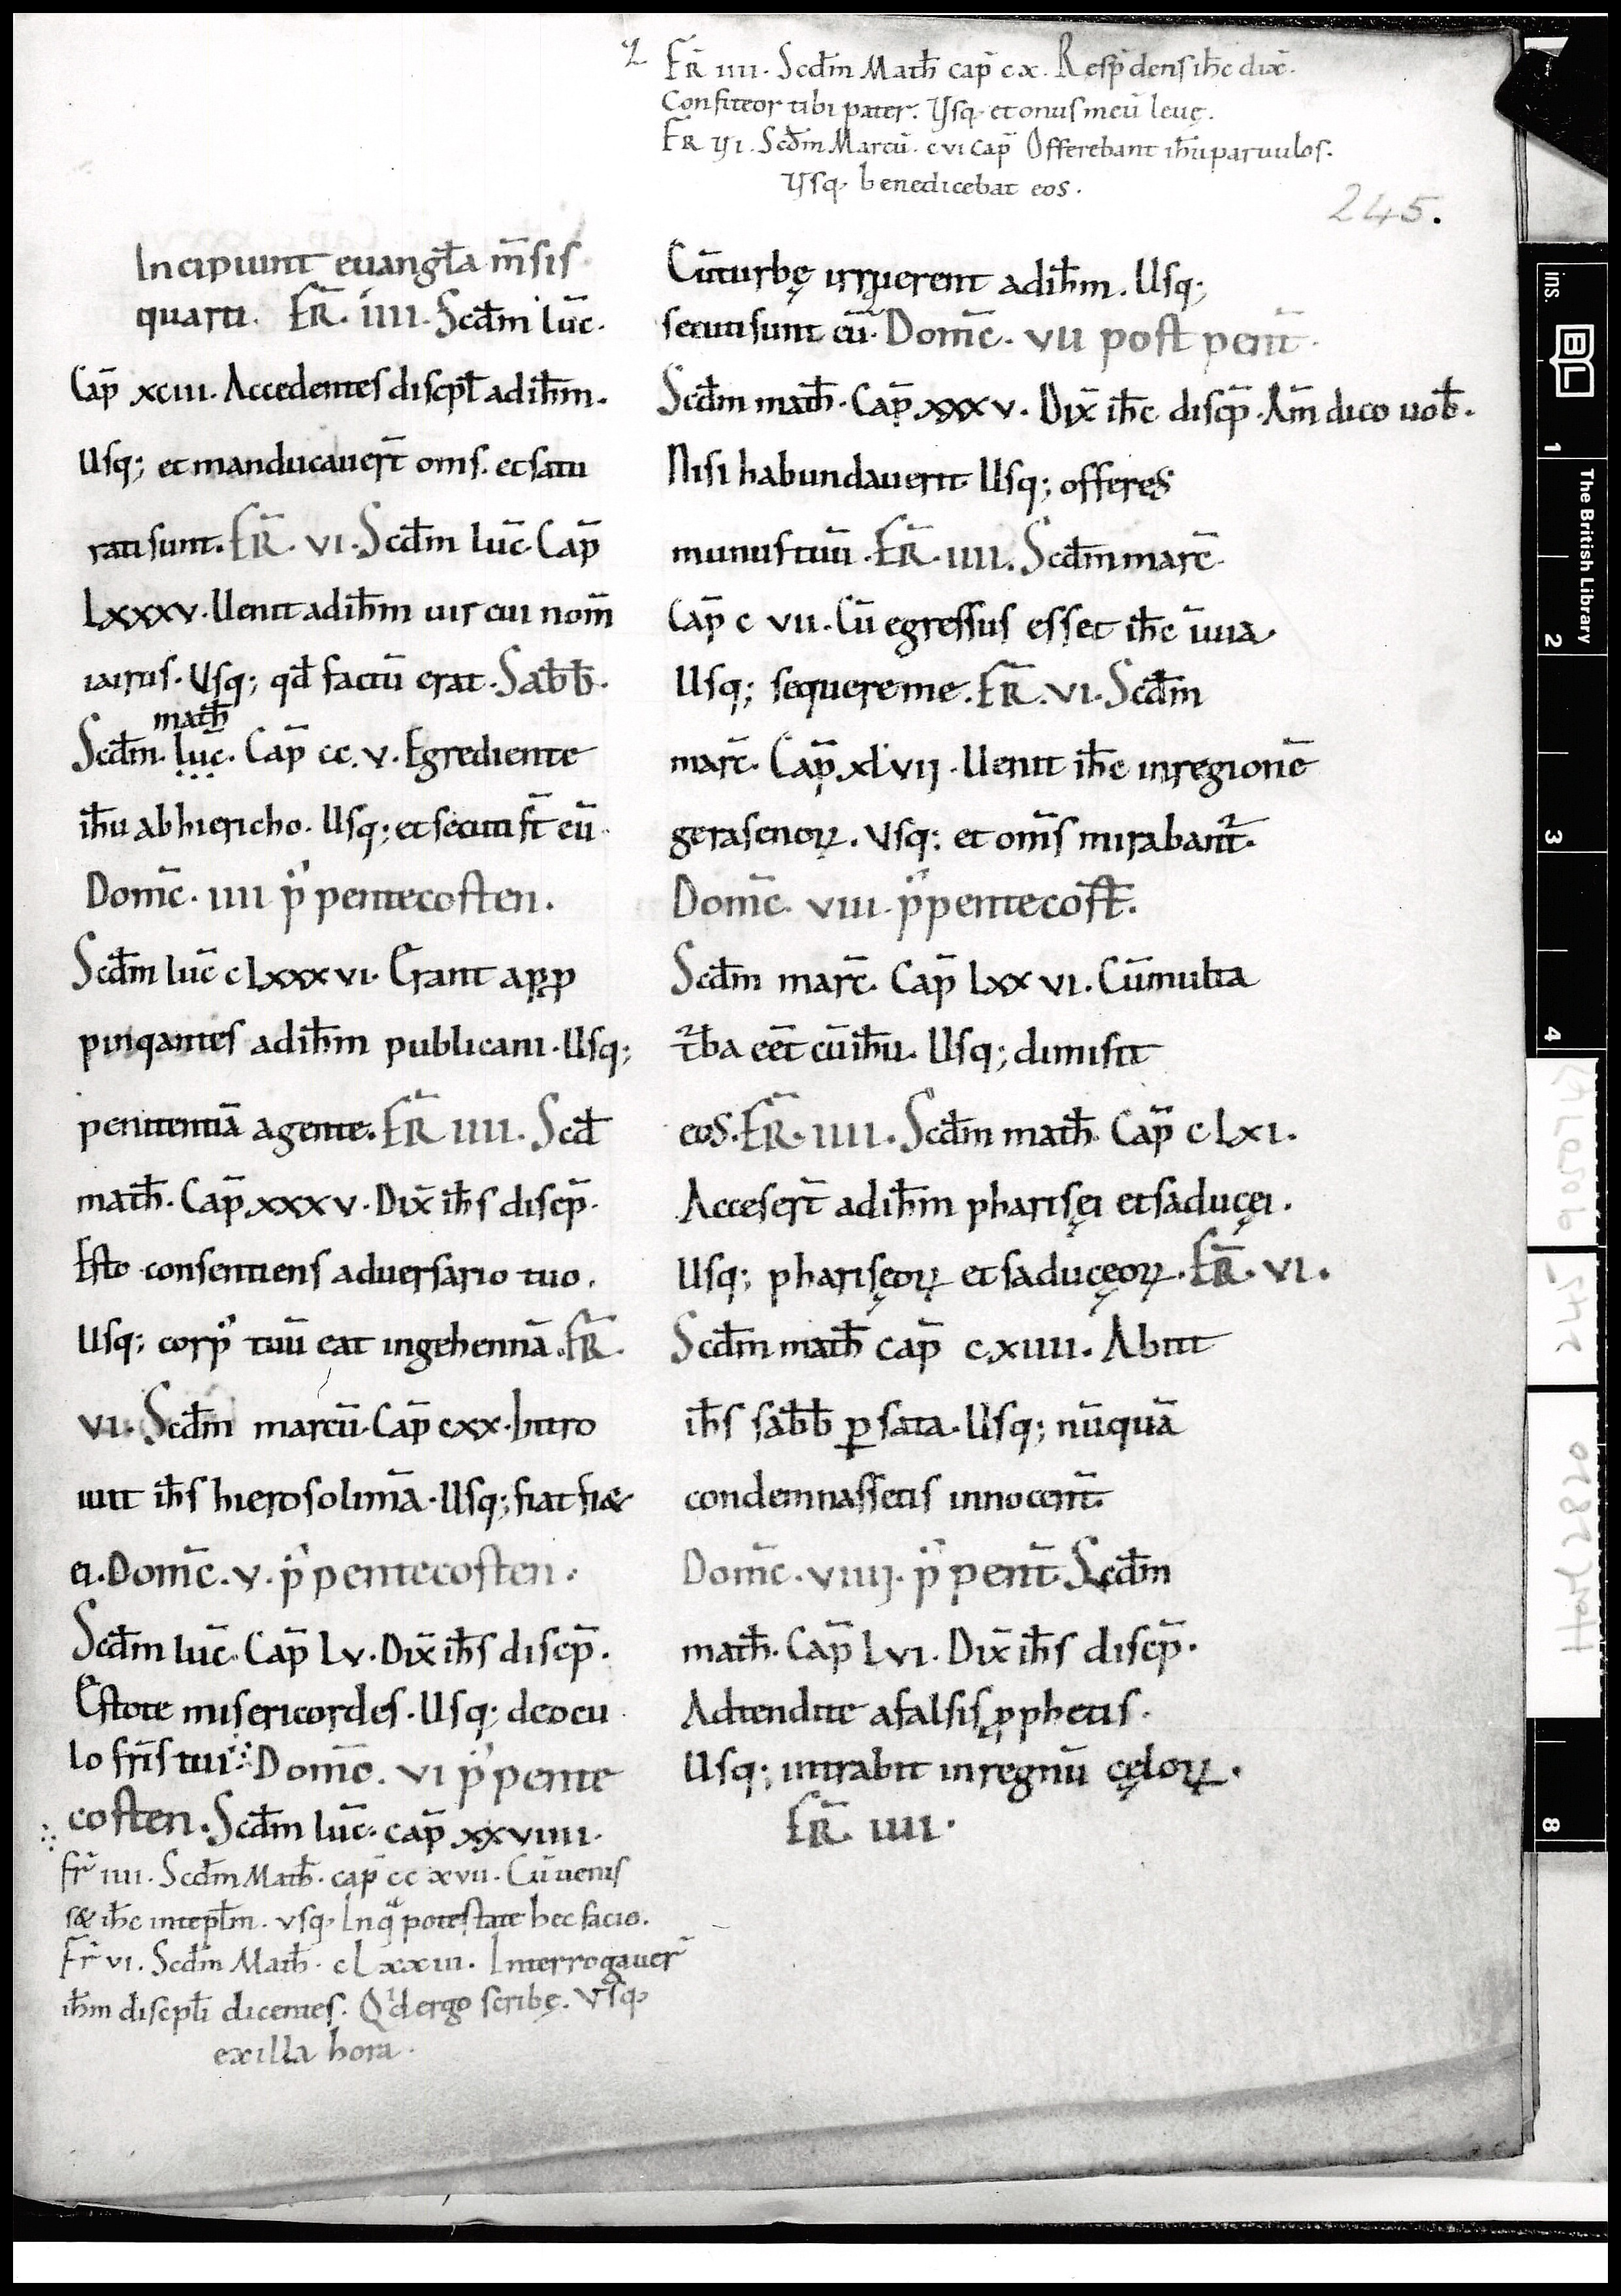 FR̄ IIII. Scd̄m Math̄ cap̄ cx. Resp̄dens ih̄c dix̄.
Confiteor tibi pater. Vsq. et onus meū leuę.
FR̄ VI. Scd̄m Marcū. cvi cap̄ Offerebant ih̄u paruulos.
Vsq. benedicebat eos.
245.
Incipiunt euangl̄a m̄sis
quarti. FR̄. IIII. Scd̄m luc̄.
Cap̄ xciii. Accedentes discpl̄ ad ih̄m.
Usq; et manducauer̄t om̄s. et satu
rati sunt. FR̄. VI. Scd̄m luc̄. Cap̄
Lxxxv. Uenit ad ih̄m uir cui nom̄
iairus. Usq; qd̄ factū erat. Sab̄b̄.
math̄
Scd̄m. luc̄. Cap̄ cc.v. Egrediente
ih̄u ab hiericho. Usq; et secuti st̄ eū.
Dom̄c. IIII p̊ pentecosten.
Scd̄m luc̄ c Lxxxvi. Erant apꝓ
pinqantes ad ih̄m publicani. Usq;
penitentiā agente. FR̄ IIII. Scd̄
math̄. Cap̄ xxxv. Dix̄ ih̄s discp̄.
Esto consentiens aduersario tuo.
Usq; corp᾿ tuū eat in gehennā. FR̄.
VI. Scd̄m marcū. Cap̄ cxx. Intro
iuit ih̄s hierosolimā. Usq; fiat fi&
ei. Dom̄c. V. p̊ pentecosten.
Scd̄m luc̄. Cap̄ Lv. Dix̄ ih̄s discp̄.
Estote misericordes. Usq; de ocu
lo fr̄is tui. Dom̄c. VI p̊ pente
costen. Scd̄m luc̄. cap̄ xxviiii.
Fr̄ IIII. Scd̄m Math̄. cap̄ cc xvii. Cū uenis
s& ih̄c in tepl̄m. vsq. In qͣ potestate hec facio.
Fr̄ VI. Scd̄m Math̄. cLxxiii. Interrogauer̄
ih̄m discpl̄i dicentes. Qⁱd ergo scribę. Vsq.
ex illa hora.
Cū turbę irruerent ad ih̄m. Usq;
secuti sunt eū. Dom̄c. VII post pent̄.
Scd̄m math̄. Cap̄ xxxv. Dix̄ ih̄c discp̄. Am̄ dico uob̄.
Nisi habundauerit Usq; offeres
munus tuū. FR̄. IIII. Scd̄m marc̄.
Cap̄ c vii. Cū egressus esset ih̄c ī uia.
Usq; sequere me. FR̄. VI. Scd̄m
marc̄. Cap̄ xlvii. Uenit ih̄c in regionē
gerasenoꝝ. Vsq; et om̄s mirabant̄.
Dom̄c. VIII. p̊ pentecost̄.
Scd̄m marc̄. Cap̄ Lxxvi. Cū multa
t̄ba eēt cū ih̄u. Usq; dimisit
eos. FR̄. IIII. Scd̄m math̄. Cap̄ cLxi.
Acceser̄t ad ih̄m pharisęi et saducęi.
Usq; pharisęoꝝ et saducęoꝝ. FR̄. VI.
Scd̄m math̄ cap̄ cxiiii. Abiit
ih̄s sab̄b̄ ꝑ sata. Usq; nūquā
condemnassetis innocent̄.
Dom̄c. VIIIJ. p̊ pent̄. Scd̄m
math̄. Cap̄ Lvi. Dix̄ ih̄s discp̄.
Adtendite a falsis ꝓphetis.
Usq; intrabit in regnū cęloꝝ.
FR̄. IIII.
ins.
1
The British Library
2
3
4
245
Harl 2820
8